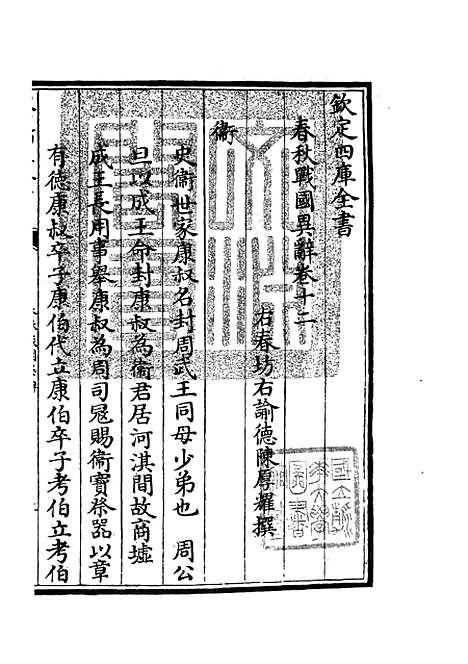 欽定四庫全書
春秋戰國異辭卷十二
右春坊右諭德陳厚耀撰
衛
史衞世家康叔名封周武王同母少弟也 周公
旦以成王命封康叔為衞君居河淇間故商墟
成王長用事舉康叔為周司寇賜衞寶祭器以章
有德康叔卒子康伯代立康伯卒子考伯立考伯